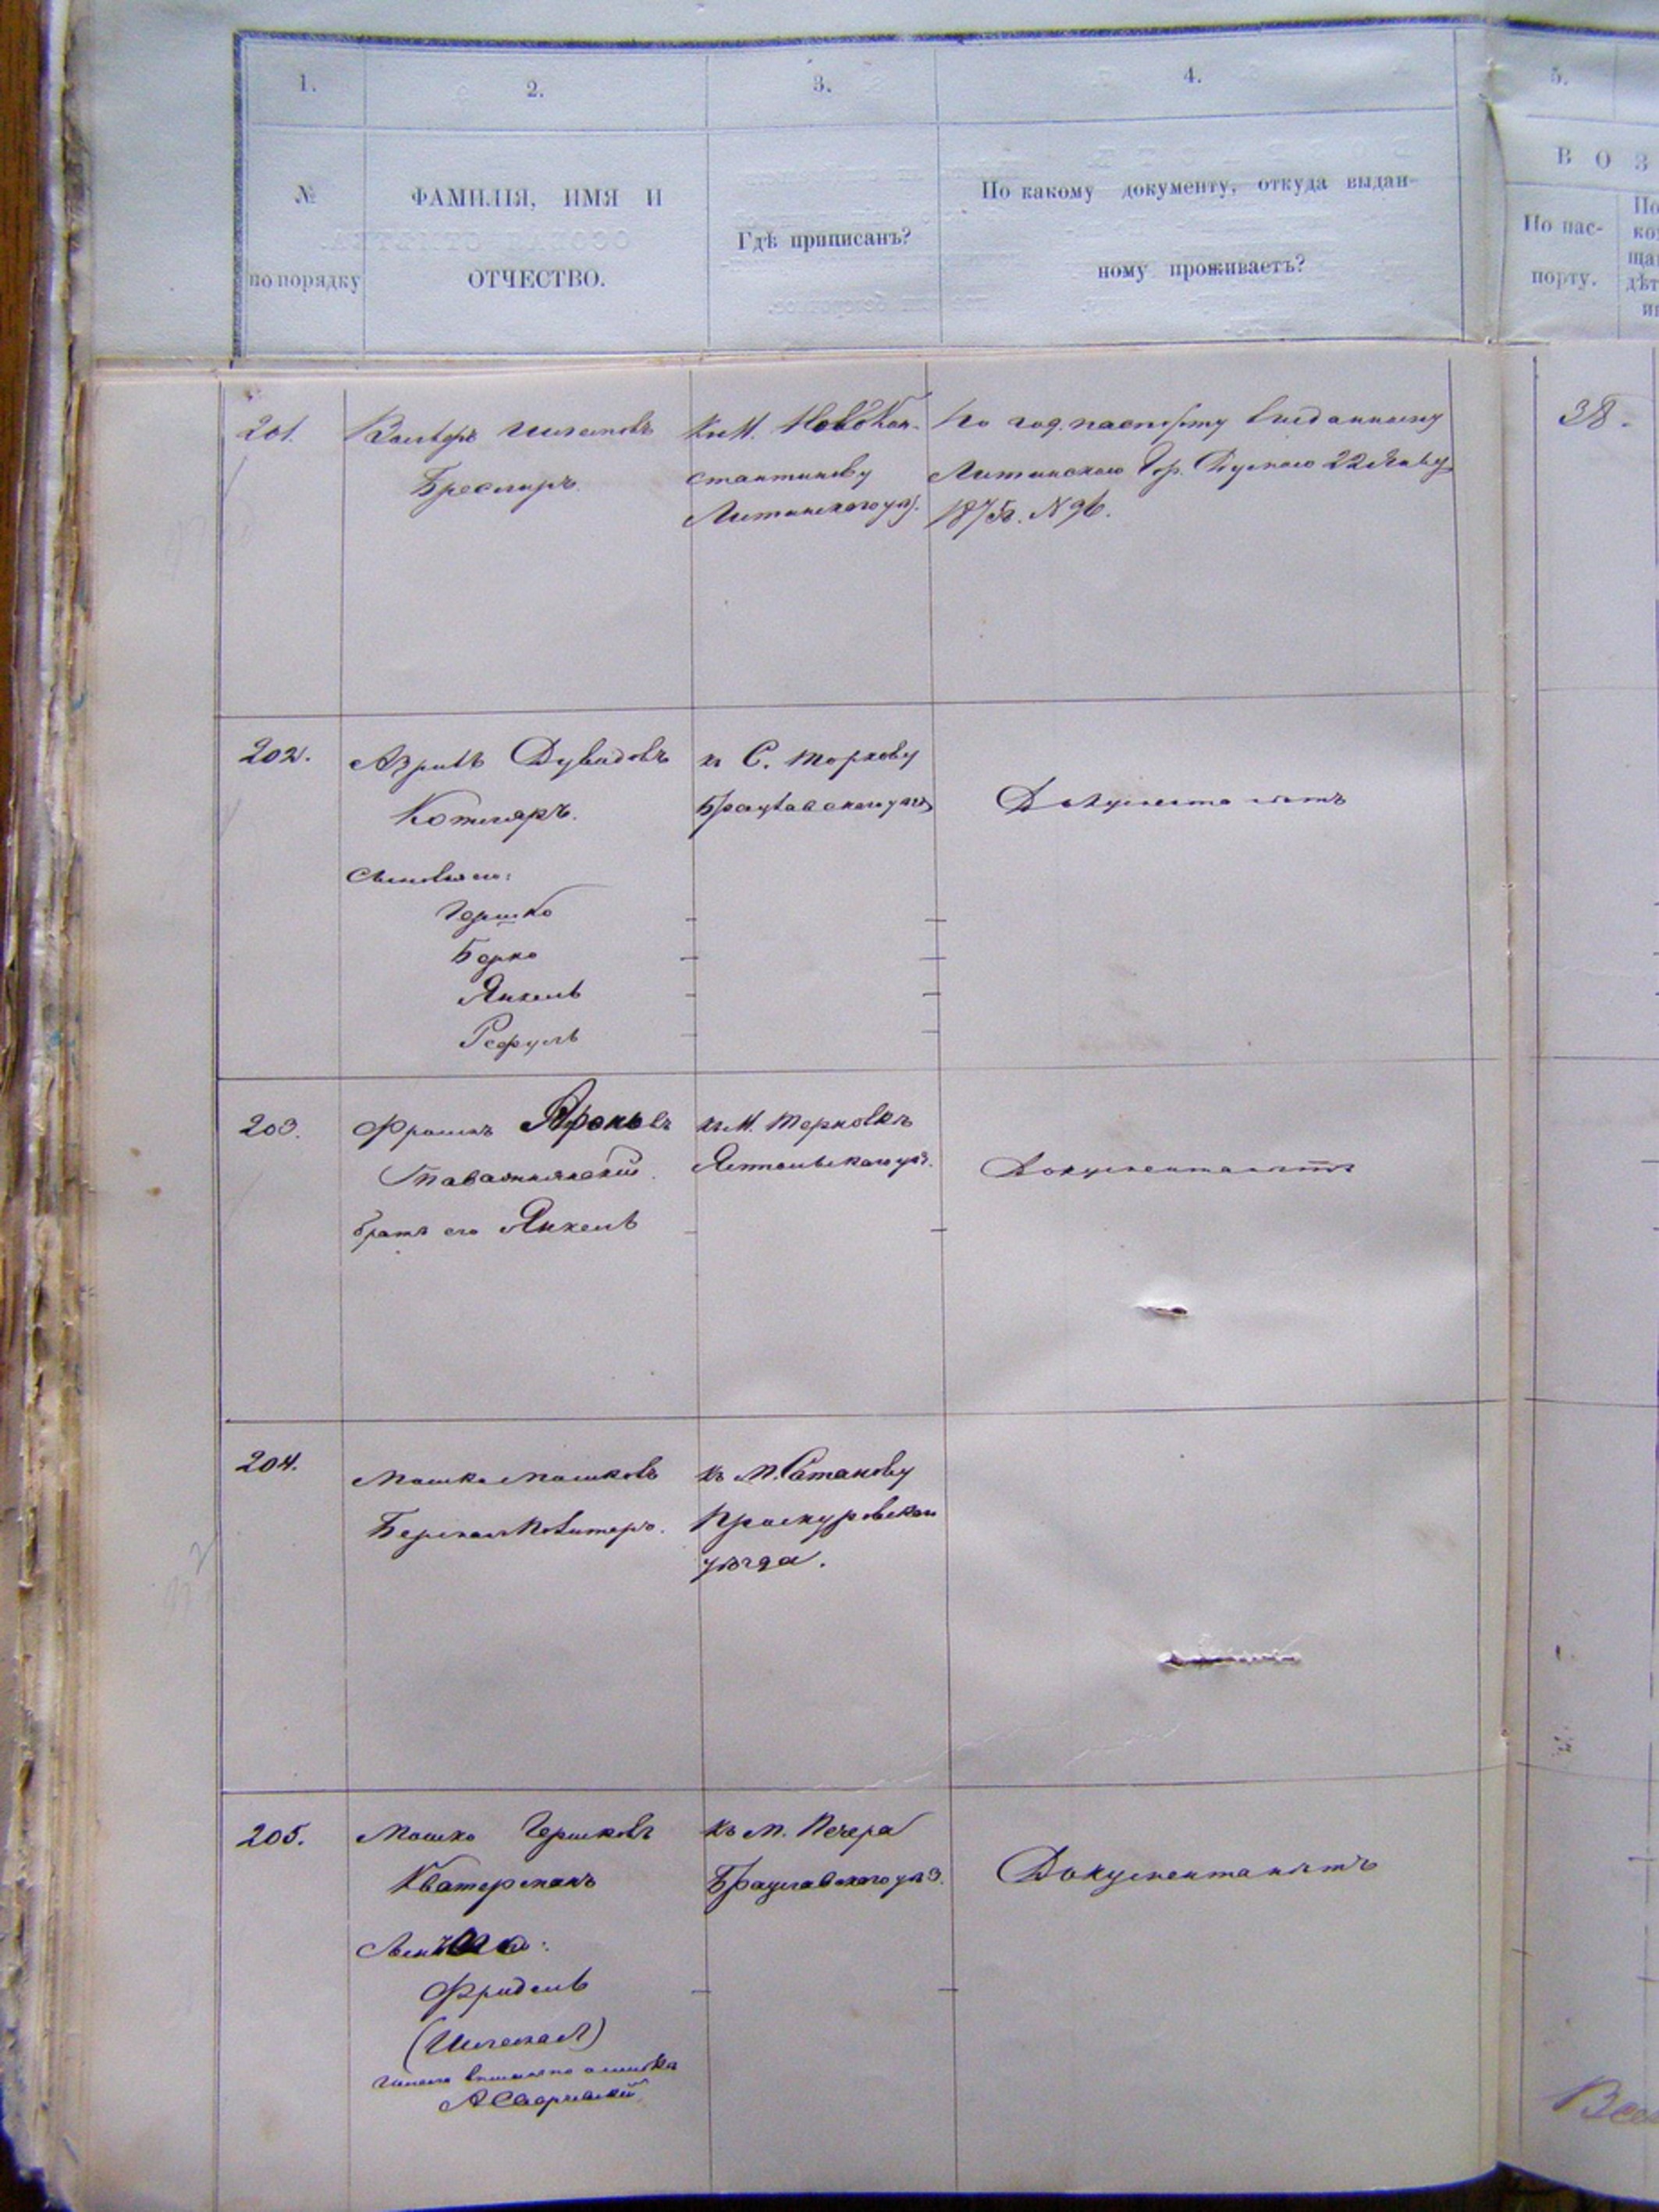 1.
2.
3.
4.
5.
№
по порядку
ФАМИЛІЯ, ИМЯ И
ОТЧЕСТВО.
Гдѣ приписанъ?
По какому документу, откуда выдан-
ному проживаетъ?
В О З
По пас-
порту.
201.
Бреслиръ
Къ М. Ново Кон-
стантинову
Литинскаго уѣз.
По год. паспорту выданному
Литинскою Гор. Думою 22
1875г. № 96.
38.
202.
Азриль Дувидовъ
Котляръ.
Сыновья его:
Гершко
Берко
Янкель
Рефуль
къ С. Торкову
Брацлавскаго уѣз
Документа нѣтъ
203.
Фроимъ Ароновъ
братъ его Янкель
къ М. Терновкѣ
Ямпольскаго уѣз.
Документа нѣтъ
204.
Мошко Мошковъ
къ М. Сатанову
Проскуровскаго
уѣзда.
205.
Мошко Гершковъ
Кватерманъ
Фридель
(Шлема)
къ М. Печера
Брацлавскаго уѣз.
Документа нѣтъ